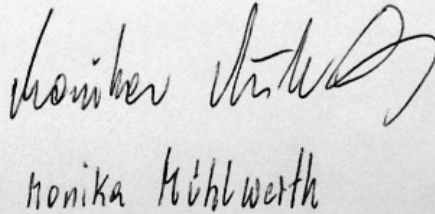 Monika Mühlwerth
Monika Mühlwerth